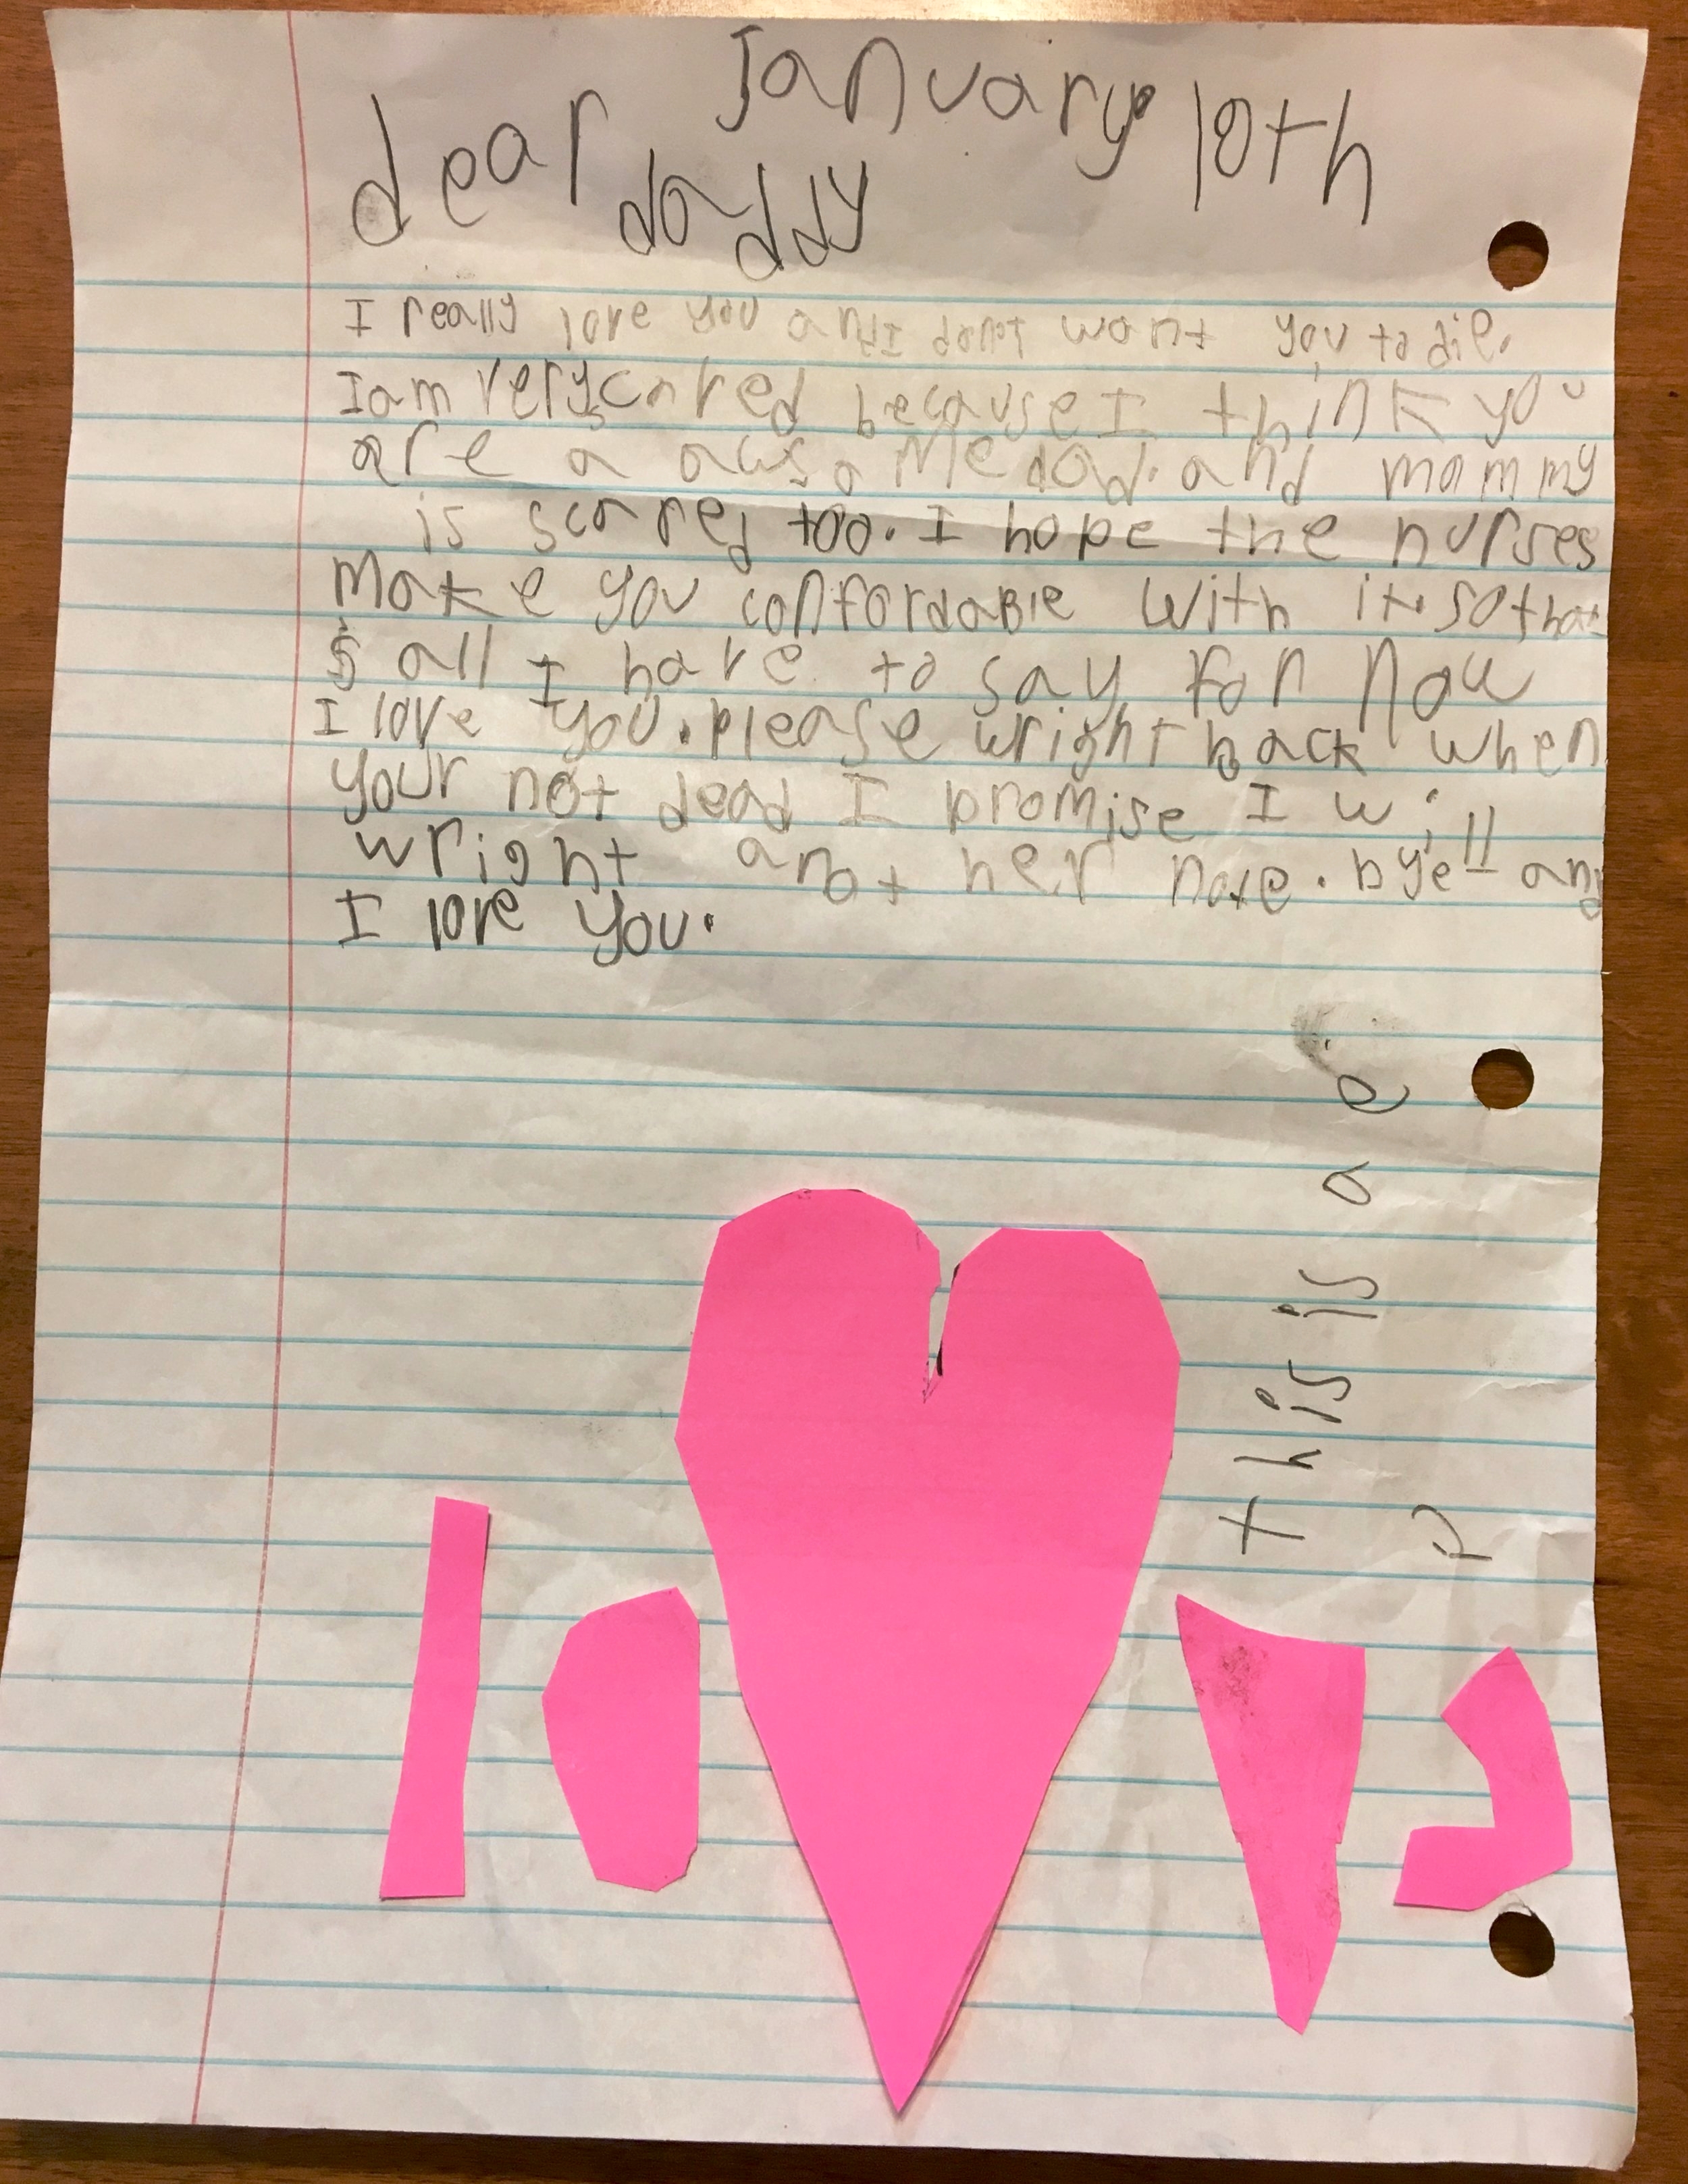 January 10th
dear daddy
I really love you and I donot want you to die.
I am very scared because I think you
are a awsome dad. and mommy
is scared too. I hope the nurses
make you confordable with it. so that
is all I have to say for now
I love you. please wright back when
your not dead I promise I will
wright another note. bye!! and
I love you.
this is a e